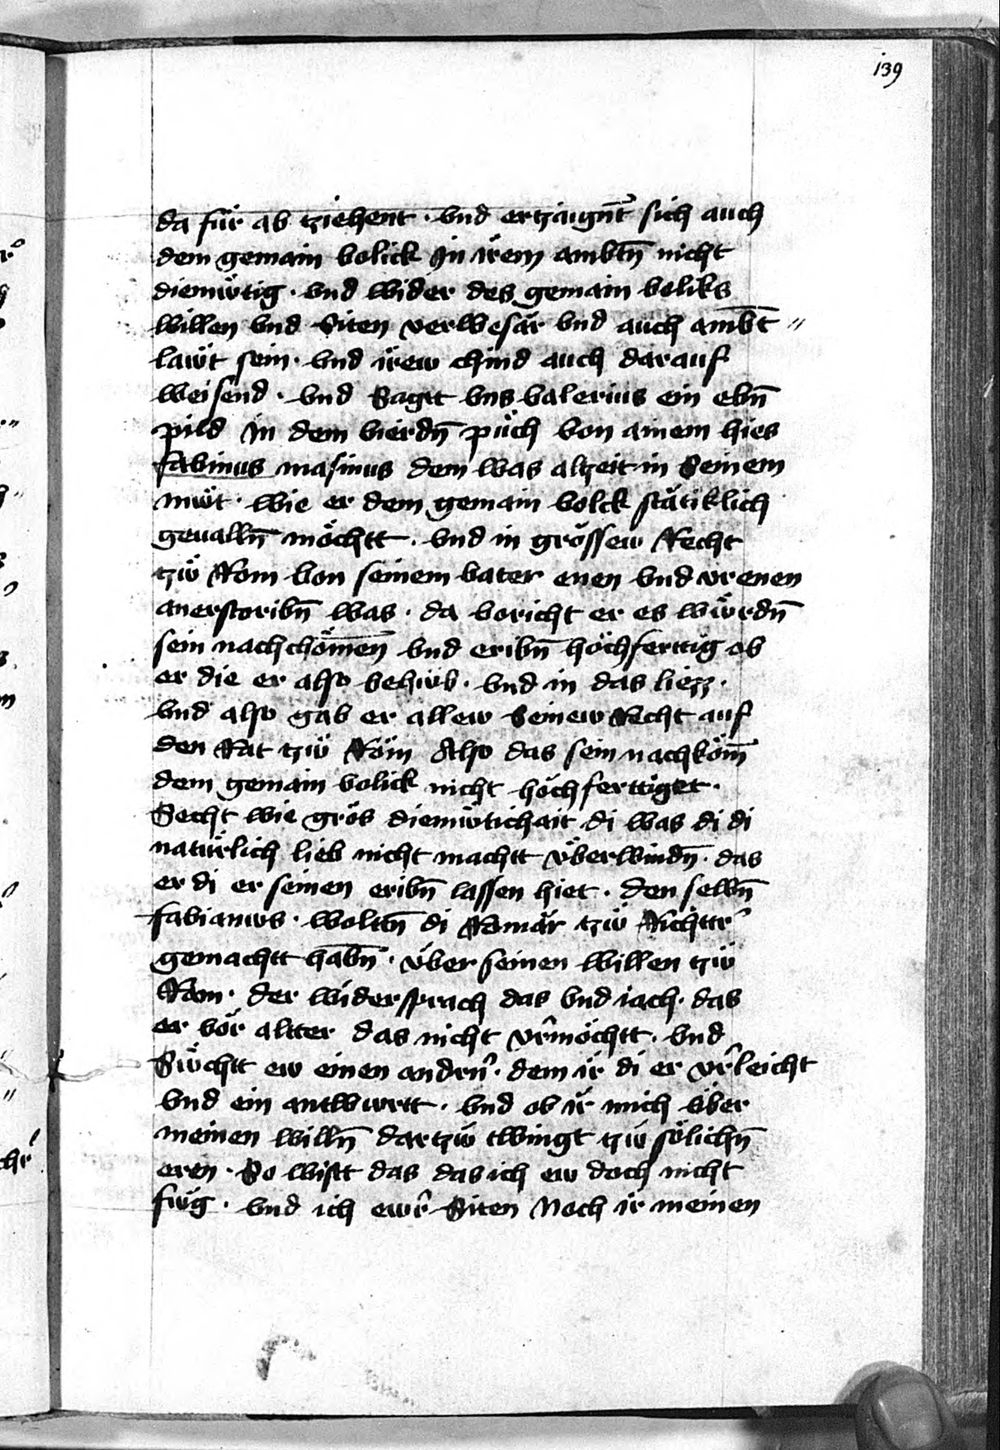 139
da für ab tziehent · vnd ertzaigñt sich auch
dem gemain volick In irem ambtñ nicht
diemüttig · vnd wider des gemain voliks
willen vnd Siten verwesär vnd auch ambt̄ //
lawt sein · vnd irew chind auch darauf
weisend · vnd Sagtt vns valerius ein ebñ
pild in dem vierdñ püch von ainem hies
fabinus masinus dem was altzeit in Seinem
müt · wie er dem gemain volck stätiklich
geuallñ möchtt · vnd in grössew Recht
tzü Rom von seinem vater enen vnd vrenen
anerstoribñ was · da voricht er es würdñ
sein nachchöm̄en vnd eribñ höchferttig ob
er die er also behüb · vnd in das liezz ·
vnd also gab er allew Seinew Recht auf
den Rat tzü Röm Also das sein nachköm̄
dem gemain volick nicht höchferttiget ·
Secht wie grös diemütichait di was di di
natürlich lieb nicht machtt vberwindñ · das
er di er seinen eribñ lassen hiet · den selbñ
fabianus · woltñ di Römär tzü Richttr̄
gemachtt habñ · vber seinen willen tzü
Rom · der widersprach das vnd iach · das
er vör altter das nicht vr̄möchtt · vnd
Süchtt ew einen andrn̄ · dem ir di er vr̄leicht
vnd ein antwurtt · vnd ob ir mich über
meinen willñ dartzü twingt tzü sölichñ
eren · So wistt das das ich ew doch nicht
füg · vnd ich ewr̄ Siten Noch ir meinen